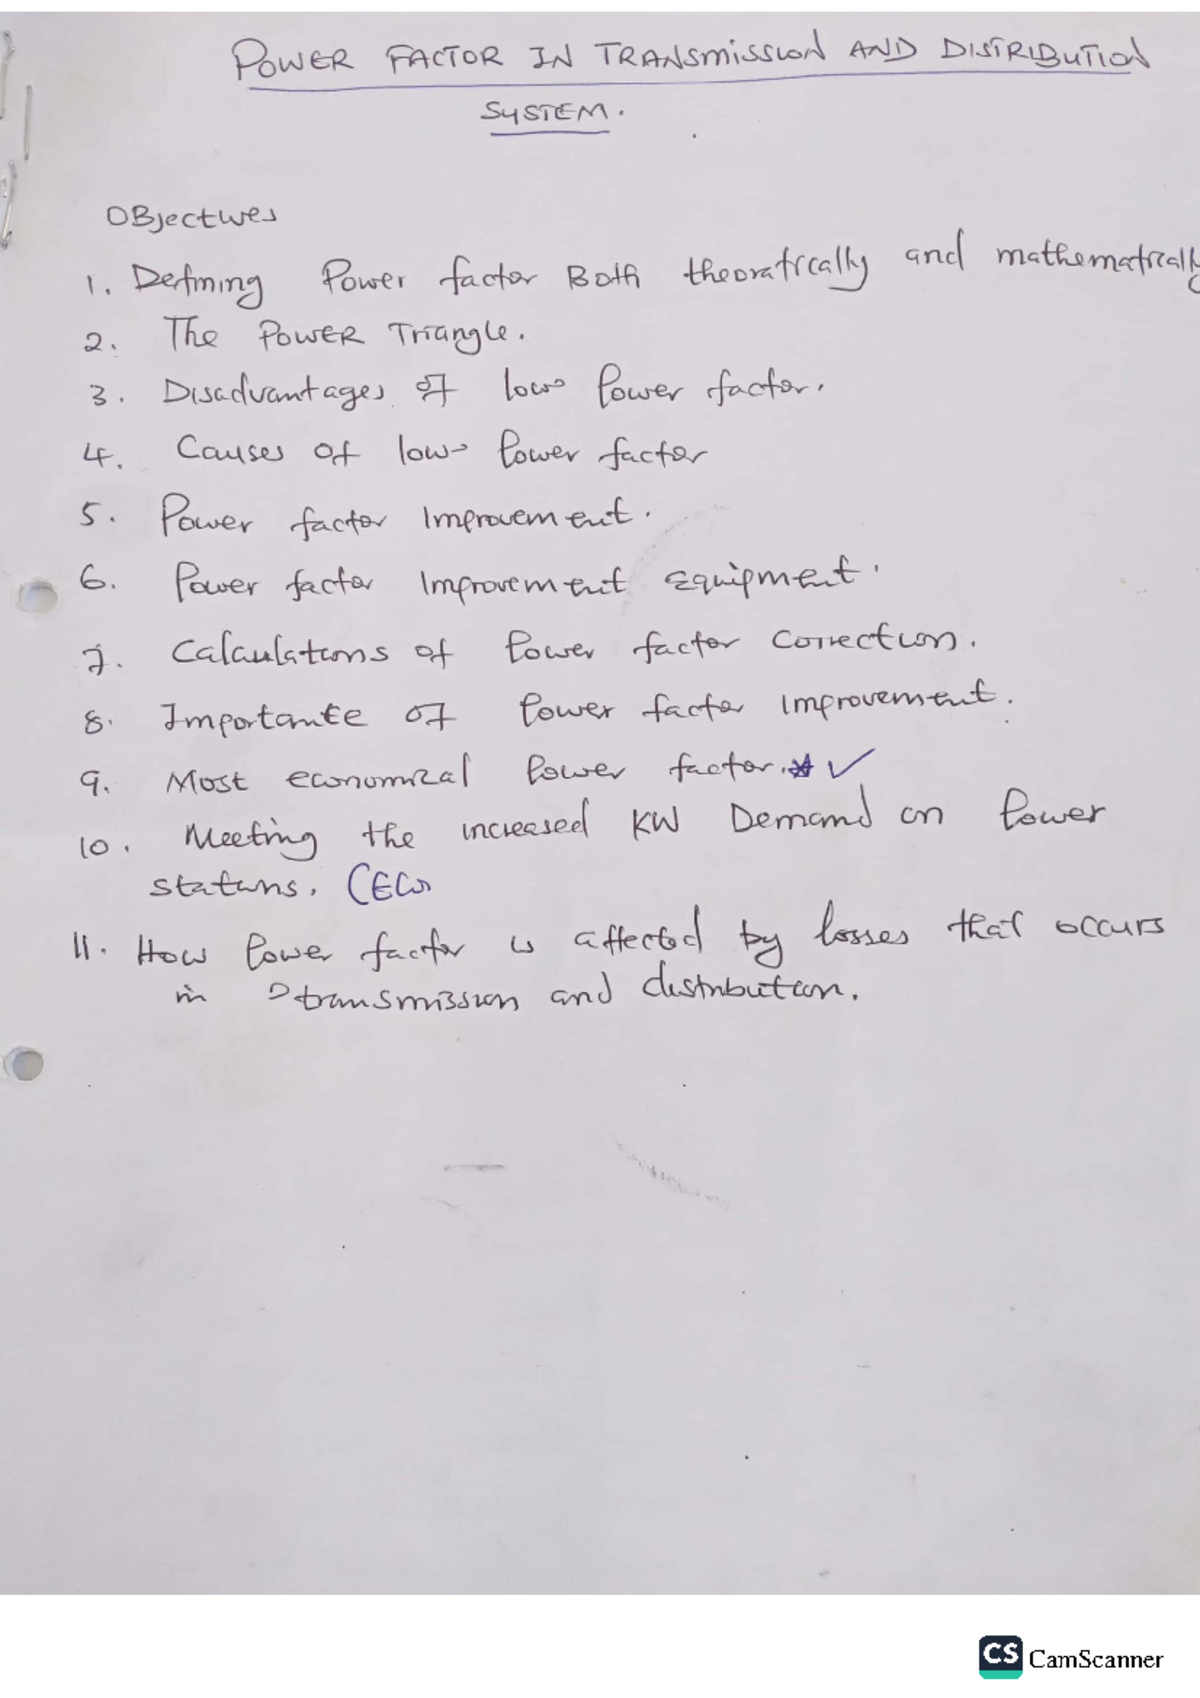 POWER FACTOR IN TRANSMISSION AND DISTRIBUTION
SYSTEM.
OBjectives
1. Defining Power factor Both theoratically and mathematically
2. The POWER Triangle.
3. Disadvantages of low Power factor.
4. Causes of low Power factor
5. Power factor Improvement.
6. Power factor Improvement Equipment.
7. Calculations of Power factor Correction.
8. Importance of Power factor Improvement.
9. Most economical Power factor.* ✓
10. Meeting the increased KW Demand on Power
stations.
11. How Power factor is affected by losses that occurs
in transmission and distribution.
CS CamScanner